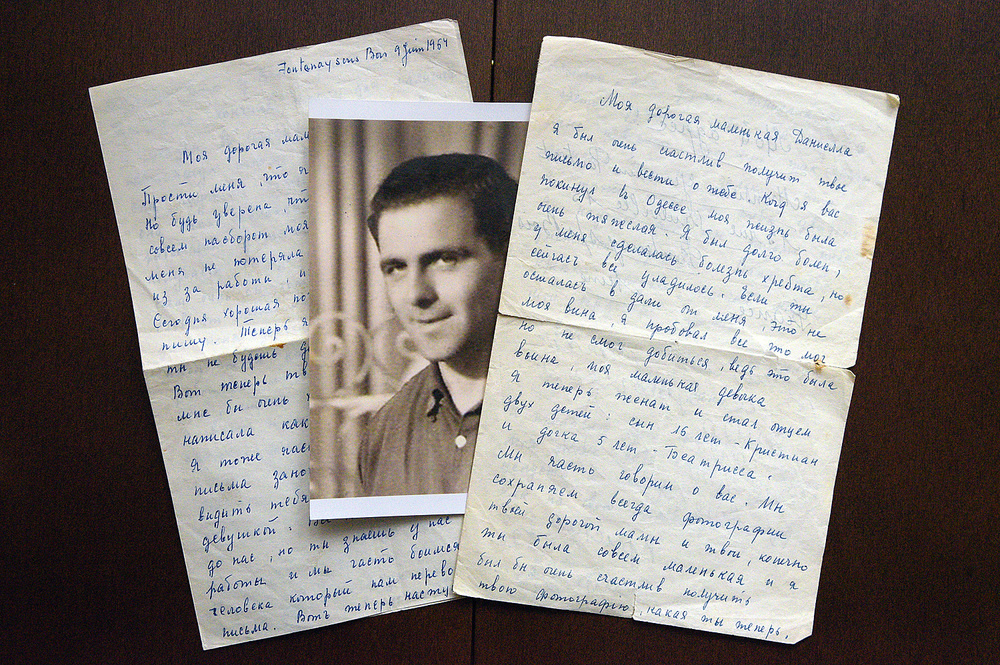 Fontenay sous Bois 9 Juin 1964
Моя дорогая мам
Прости меня, что я
Но будь уверена, чт
совсем наоборот моя
меня не потеряла
из за работи, и
Сегодня хорошая по
пишу. Теперь я
ти не будешь д
Вот теперь тв
мне би очень х
написала как
я тоже час
письма зано
видить тебя
девушкой. Вс
до нас, но ти знаешь у нас
работы и ми часто боимся
человека который нам перево
письма. Вотъ теперь насту
Моя дорогая маленькая Даниелла
Я бил очень счастлив получит твое
письмо и вести о тебе. Когд я вас
покинул въ Одессе моя жизнь била
очень тяжеслая. Я был долго болен,
у меня сделалась болезнь хребта, но
сейчасъ все уладилось. Если ти
осталась в дали от меня, это не
моя вина, я пробовал все это мог
но не смог добиться, ведь это била
воина, моя маленькая девыка
Я теперь женат и стал отцем
двух детей: син 16 лет - Кристиан
и дочка 5 лет - Беатрисса.
Ми часть говорим о вас. Ми
сохраняем всегда фотографии
твоей дорогой мами и твои, конично
ти била совсем маленькая и я
бил би очень счастлив получить
твою фотографію, какая ти теперь,